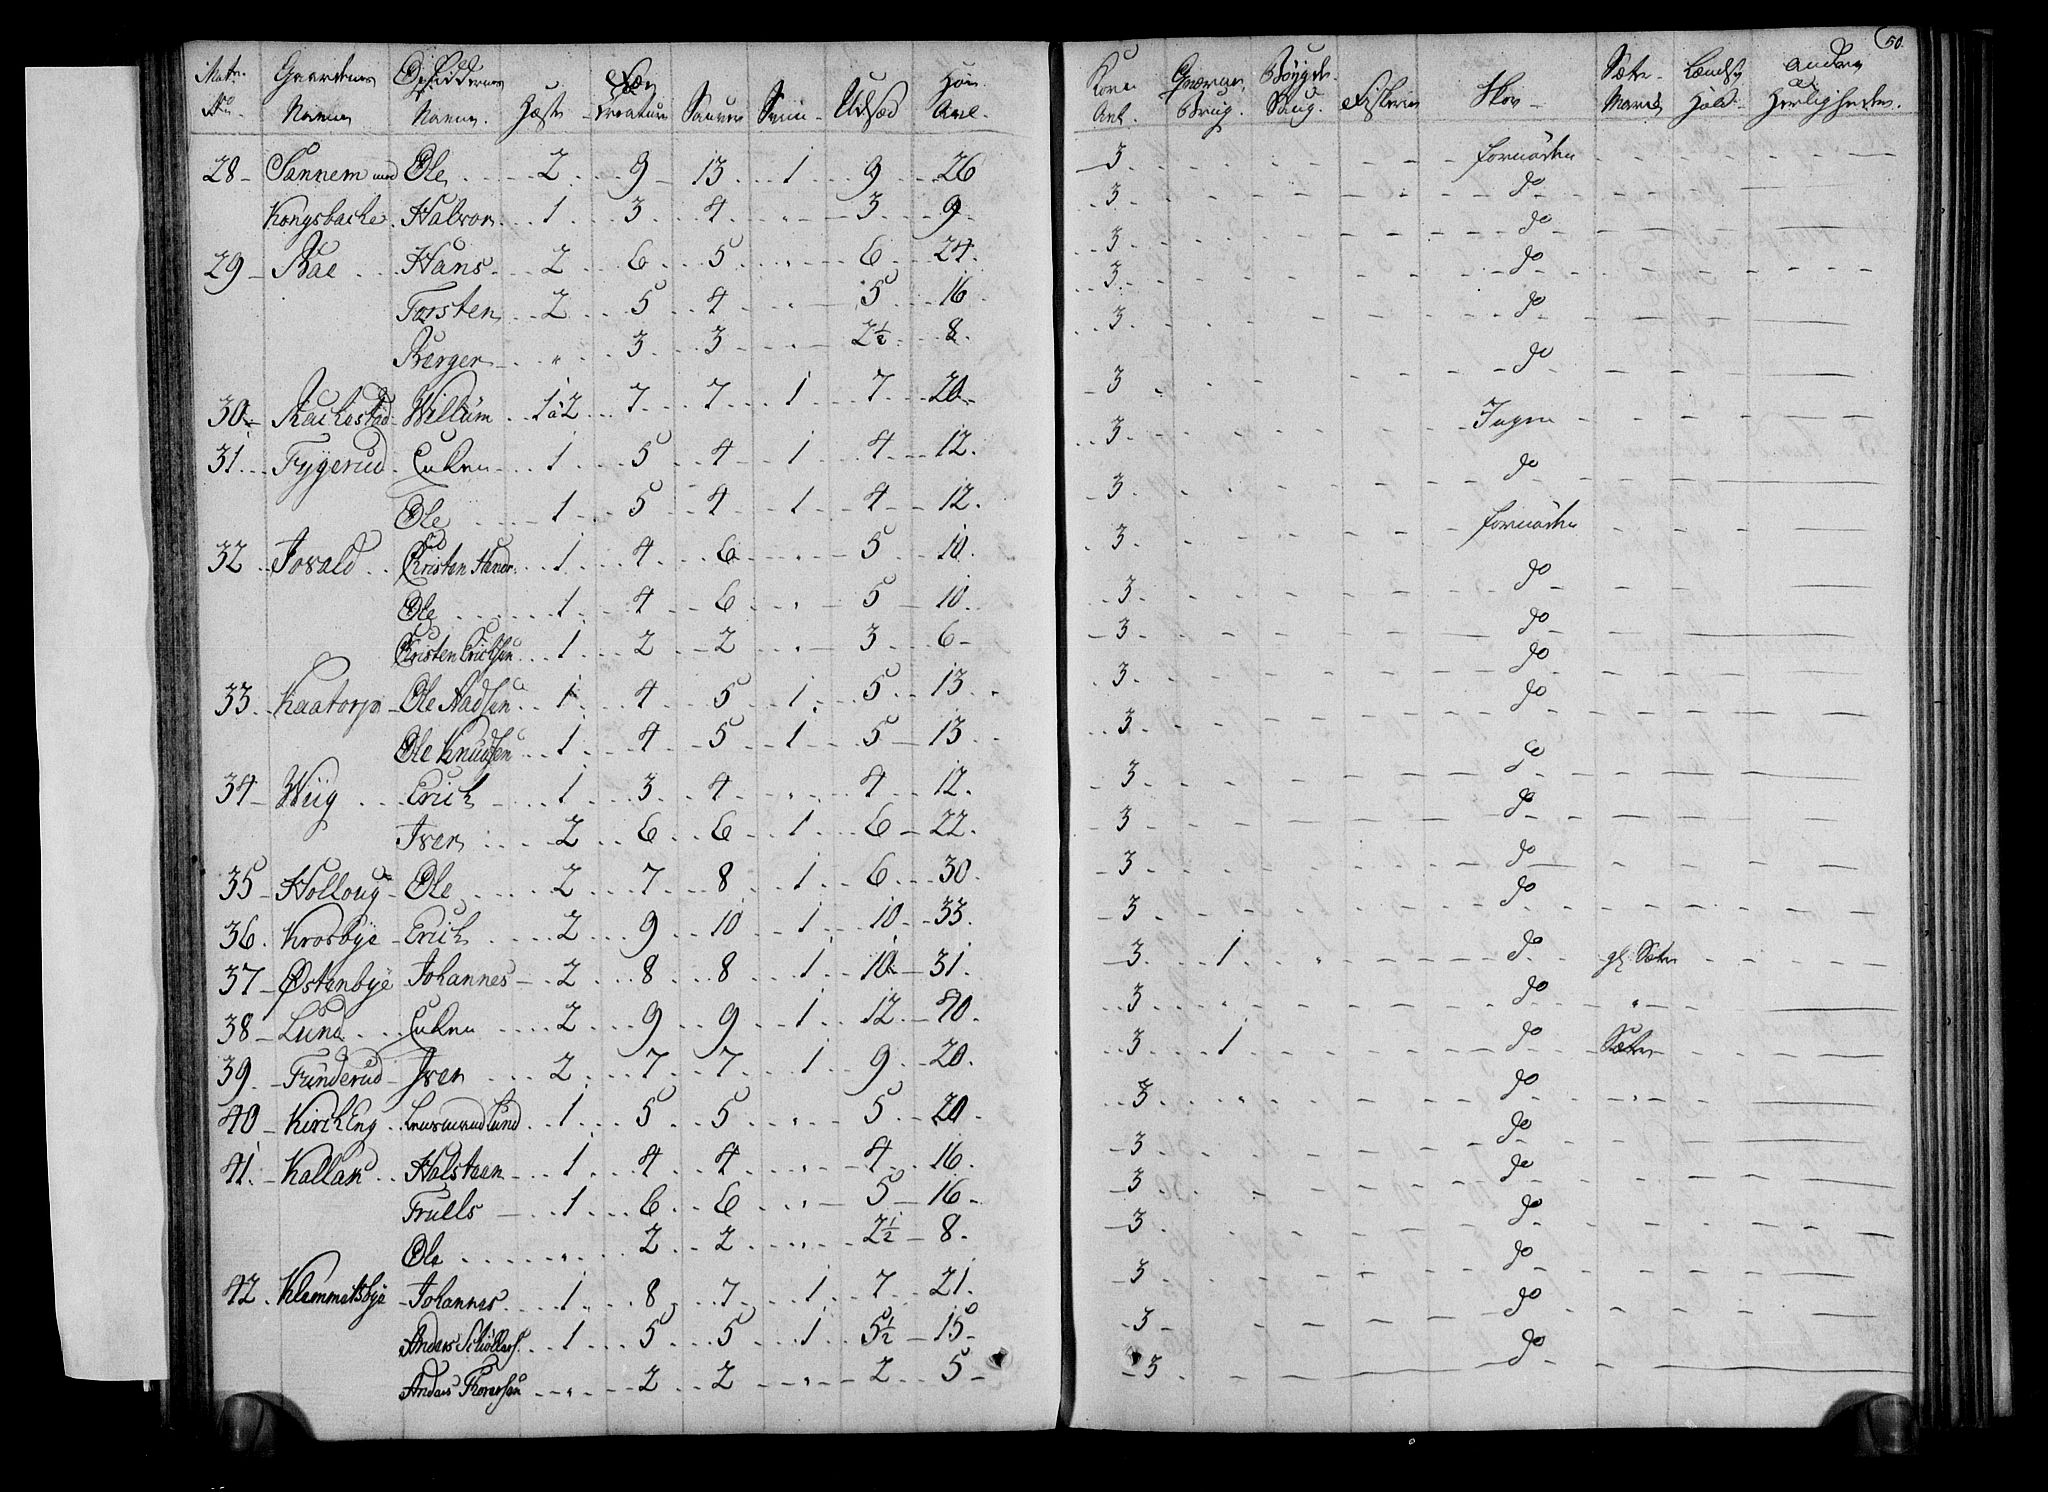 50.
Matr. No Gaardenes Navne Opsiddernes Navne. Hæste Fæe Creature Sauver Sviin Udsæd Høe Avl. Korn Avl. Qværne Brug. Bøygde Saug. Fiskerie Skov Sæter Havn Andre Herligheder.
28 Sannem med Ole 2 9 13 1 9 26 3 fornøden
Kongsbacke Halvor 1 3 4 " 3 9 3 do
29 Rae Hans 2 6 5 " 6 24 3 do
Torsten 2 5 4 " 5 16 3 do
Berger " 3 3 " 2½ 8 3 do
30 Rachestad Willum 1 a 2 7 7 1 7 20 3 do
31 Tygerud Enken 1 5 4 1 4 12 3 Ingen
Ole 1 5 4 1 4 12 3 do
32 Josald Christen Hendr. 1 4 6 " 5 10 3 fornøden
Ole 1 4 6 " 5 10 3 do
Christen Erichsen 1 2 2 " 3 6 3 do
33 Kaatorp Ole Aadsen 1 4 5 1 5 13 3 do
Ole Knudsen 1 4 5 1 5 13 3 do
34 Wiig Erich 1 3 4 " 4 12 3 do
Iver 2 6 6 1 6 22 3 do
35 Holloug Ole 2 7 8 1 6 30 3 do
36 Krosbye Erich 2 9 10 1 10 33 3 do
37 Østenbye Johannes 2 8 8 1 10 31 3 1 " do gl. Sæter
38 Lund Enken 2 9 9 1 12 40 3 " do "
39 Funderud Iver 2 7 7 1 9 20 3 1 do Sæter
40 KirchEng Lensmand Lund 1 5 5 " 5 20 3 " do "
41 Kallak Halsteen 1 4 4 " 4 16 3 do
Trulls 1 6 6 " 5 16 3 do
Ole " 2 2 " 2½ 8 3 do
42 Klemmetsbye Johannes 1 8 7 1 7 21 3 do
Anders Schøllers. 1 5 5 1 5½ 15 3 do
Anders Thoresen " 2 2 " 2 5 3 do